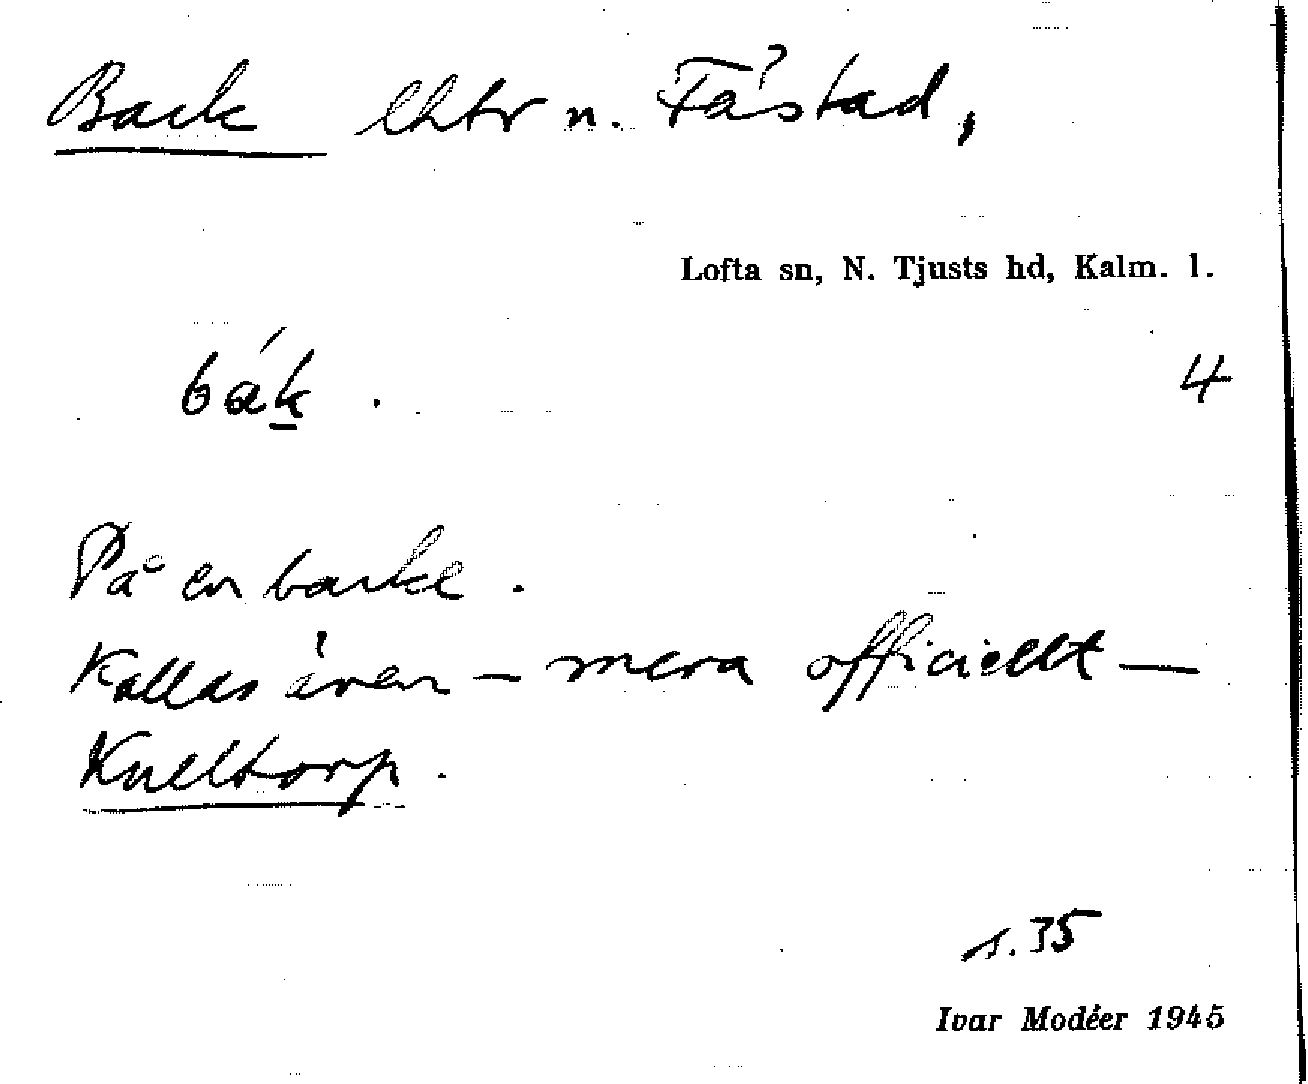 Back lhtr n. Fåstad,
Lofta sn, N. Tjusts hd, Kalm. l.
bák. 4
På en backe.
Kallas även – mera officiellt –
Knelltorp.
s. 35
Ivar Modéer 1945